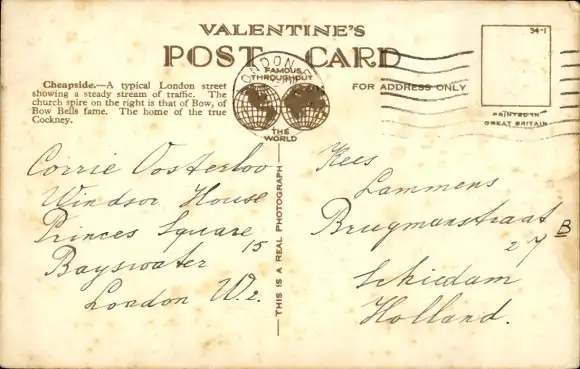 VALENTINE'S
POST CARD
34-1
LONDON
FAMOUS
THROUGHOUT
THE
WORLD
FOR ADDRESS ONLY
PRINTED IN
GREAT BRITAIN
Cheapside.—A typical London street
showing a steady stream of traffic. The
church spire on the right is that of Bow, of
Bow Bells fame. The home of the true
Cockney.
THIS IS A REAL PHOTOGRAPH
Corrie Oosterloo
Windsor House
Princes Square
15
Bayswater
London W.2.
Kees
Lammens
Brugmanstraat
27 B
Schiedam
Holland.